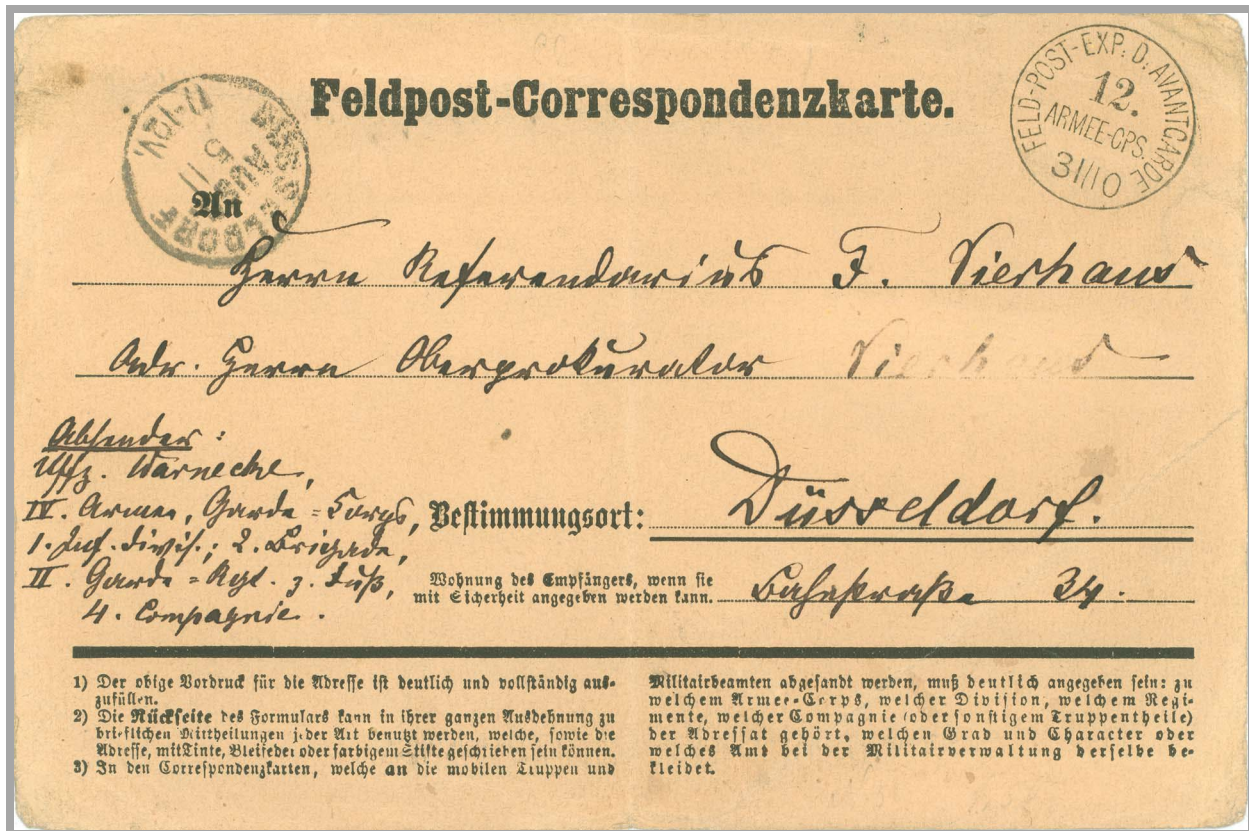 Feldpost-Correspondenzkarte.
FELD-POST-EXP. D. AVANTGARDE
12.
ARMEE-CPS.
31/10
DÜSSELDORF
5 11
AUSG
11-12V.
An
Herrn Referendarius F. Vierhaus
Adr. Herrn Oberprokurator Vierhaus
Absender:
Uffz. Warnecke,
IV. Armee, Garde-Corps,
1. Inf. Divis.; 2. Brigade,
II. Garde-Rgt. z. Fuß,
4. Compagnie.
Bestimmungsort: Düsseldorf.
Wohnung des Empfängers, wenn sie
mit Sicherheit angegeben werden kann. Bahnstraße 34.
1) Der obige Vordruck für die Adresse ist deutlich und vollständig aus-
zufüllen.
2) Die Rückseite des Formulars kann in ihrer ganzen Ausdehnung zu
brieflichen Mittheilungen jeder Art benutzt werden, welche, sowie die
Adresse, mit Tinte, Bleifeder oder farbigem Stifte geschrieben sein können.
3) In den Correspondenzkarten, welche an die mobilen Truppen und
Militairbeamten abgesandt werden, muß deutlich angegeben sein: zu
welchem Armee-Corps, welcher Division, welchem Regi-
mente, welcher Compagnie (oder sonstigem Truppentheile)
der Adressat gehört, welchen Grad und Character oder
welches Amt bei der Militairverwaltung derselbe be-
kleidet.